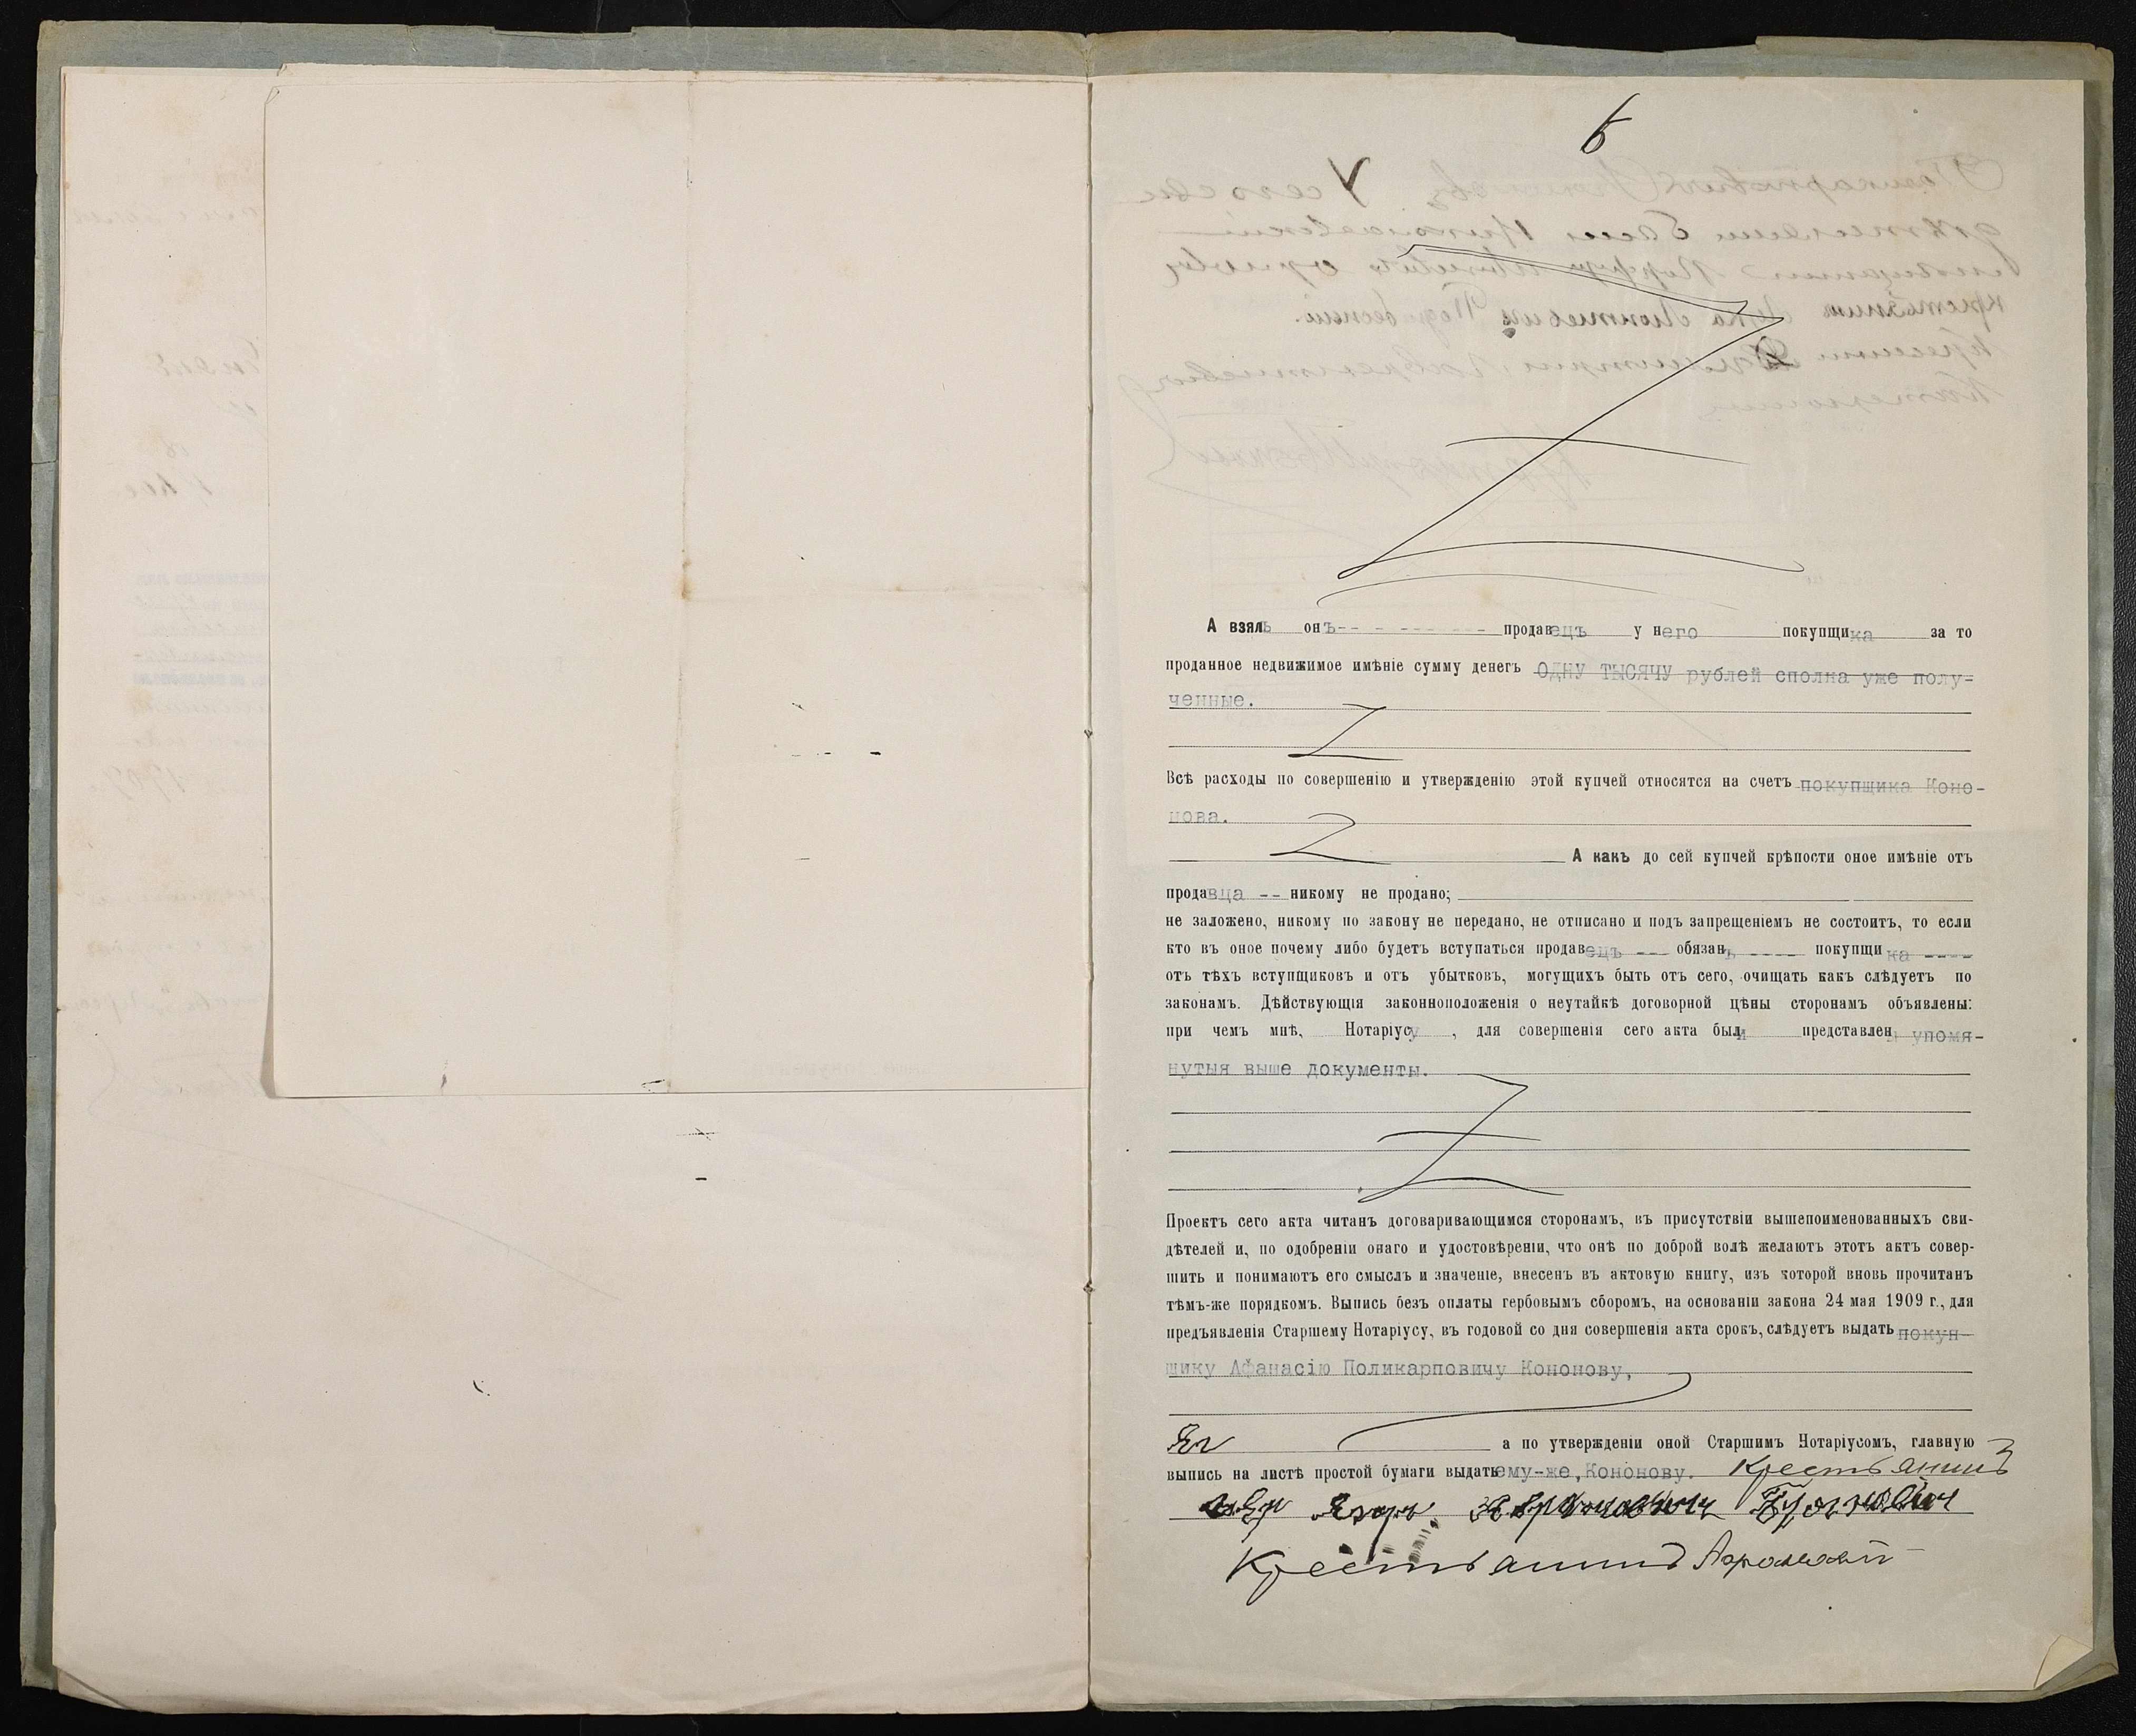 6
А взялъ онъ-- - --- --- -- продавецъ у него покупщика за то
проданное недвижимое имѣніе сумму денегъ ОДНУ ТЫСЯЧУ рублей сполна уже полу=
ченные.
Всѣ расходы по совершенію и утвержденію этой купчей относятся на счетъ покупщика Коно-
нова.
А какъ до сей купчей крѣпости оное имѣніе отъ
продавца -- никому не продано;
не заложено, никому по закону не передано, не отписано и подъ запрещеніемъ не состоитъ, то если
кто въ оное почему либо будетъ вступаться продавецъ --- обязанъ ---- покупщика ----
отъ тѣхъ вступщиковъ и отъ убытковъ, могущихъ быть отъ сего, очищать какъ слѣдуетъ по
законамъ. Дѣйствующія законноположенія о неутайкѣ договорной цѣны сторонамъ объявлены:
при чемъ мнѣ, Нотаріусу , для совершенія сего акта были представлены упомя-
нутыя выше документы.
Проектъ сего акта читанъ договаривающимся сторонамъ, въ присутствіи вышепоименованныхъ сви-
дѣтелей и, по одобреніи онаго и удостовѣреніи, что онѣ по доброй волѣ желаютъ этотъ актъ совер-
шить и понимаютъ его смыслъ и значеніе, внесенъ въ актовую книгу, изъ которой вновь прочитанъ
тѣмъ-же порядкомъ. Выпись безъ оплаты гербовымъ сборомъ, на основаніи закона 24 мая 1909 г., для
предъявленія Старшему Нотаріусу, въ годовой со дня совершенія акта срокъ, слѣдуетъ выдать покуп-
щику Афанасію Поликарповичу Кононову,
а по утвержденіи оной Старшимъ Нотаріусомъ, главную
выпись на листѣ простой бумаги выдать ему-же, Кононову. Крестьянинъ
Крестьянинъ Афанасій